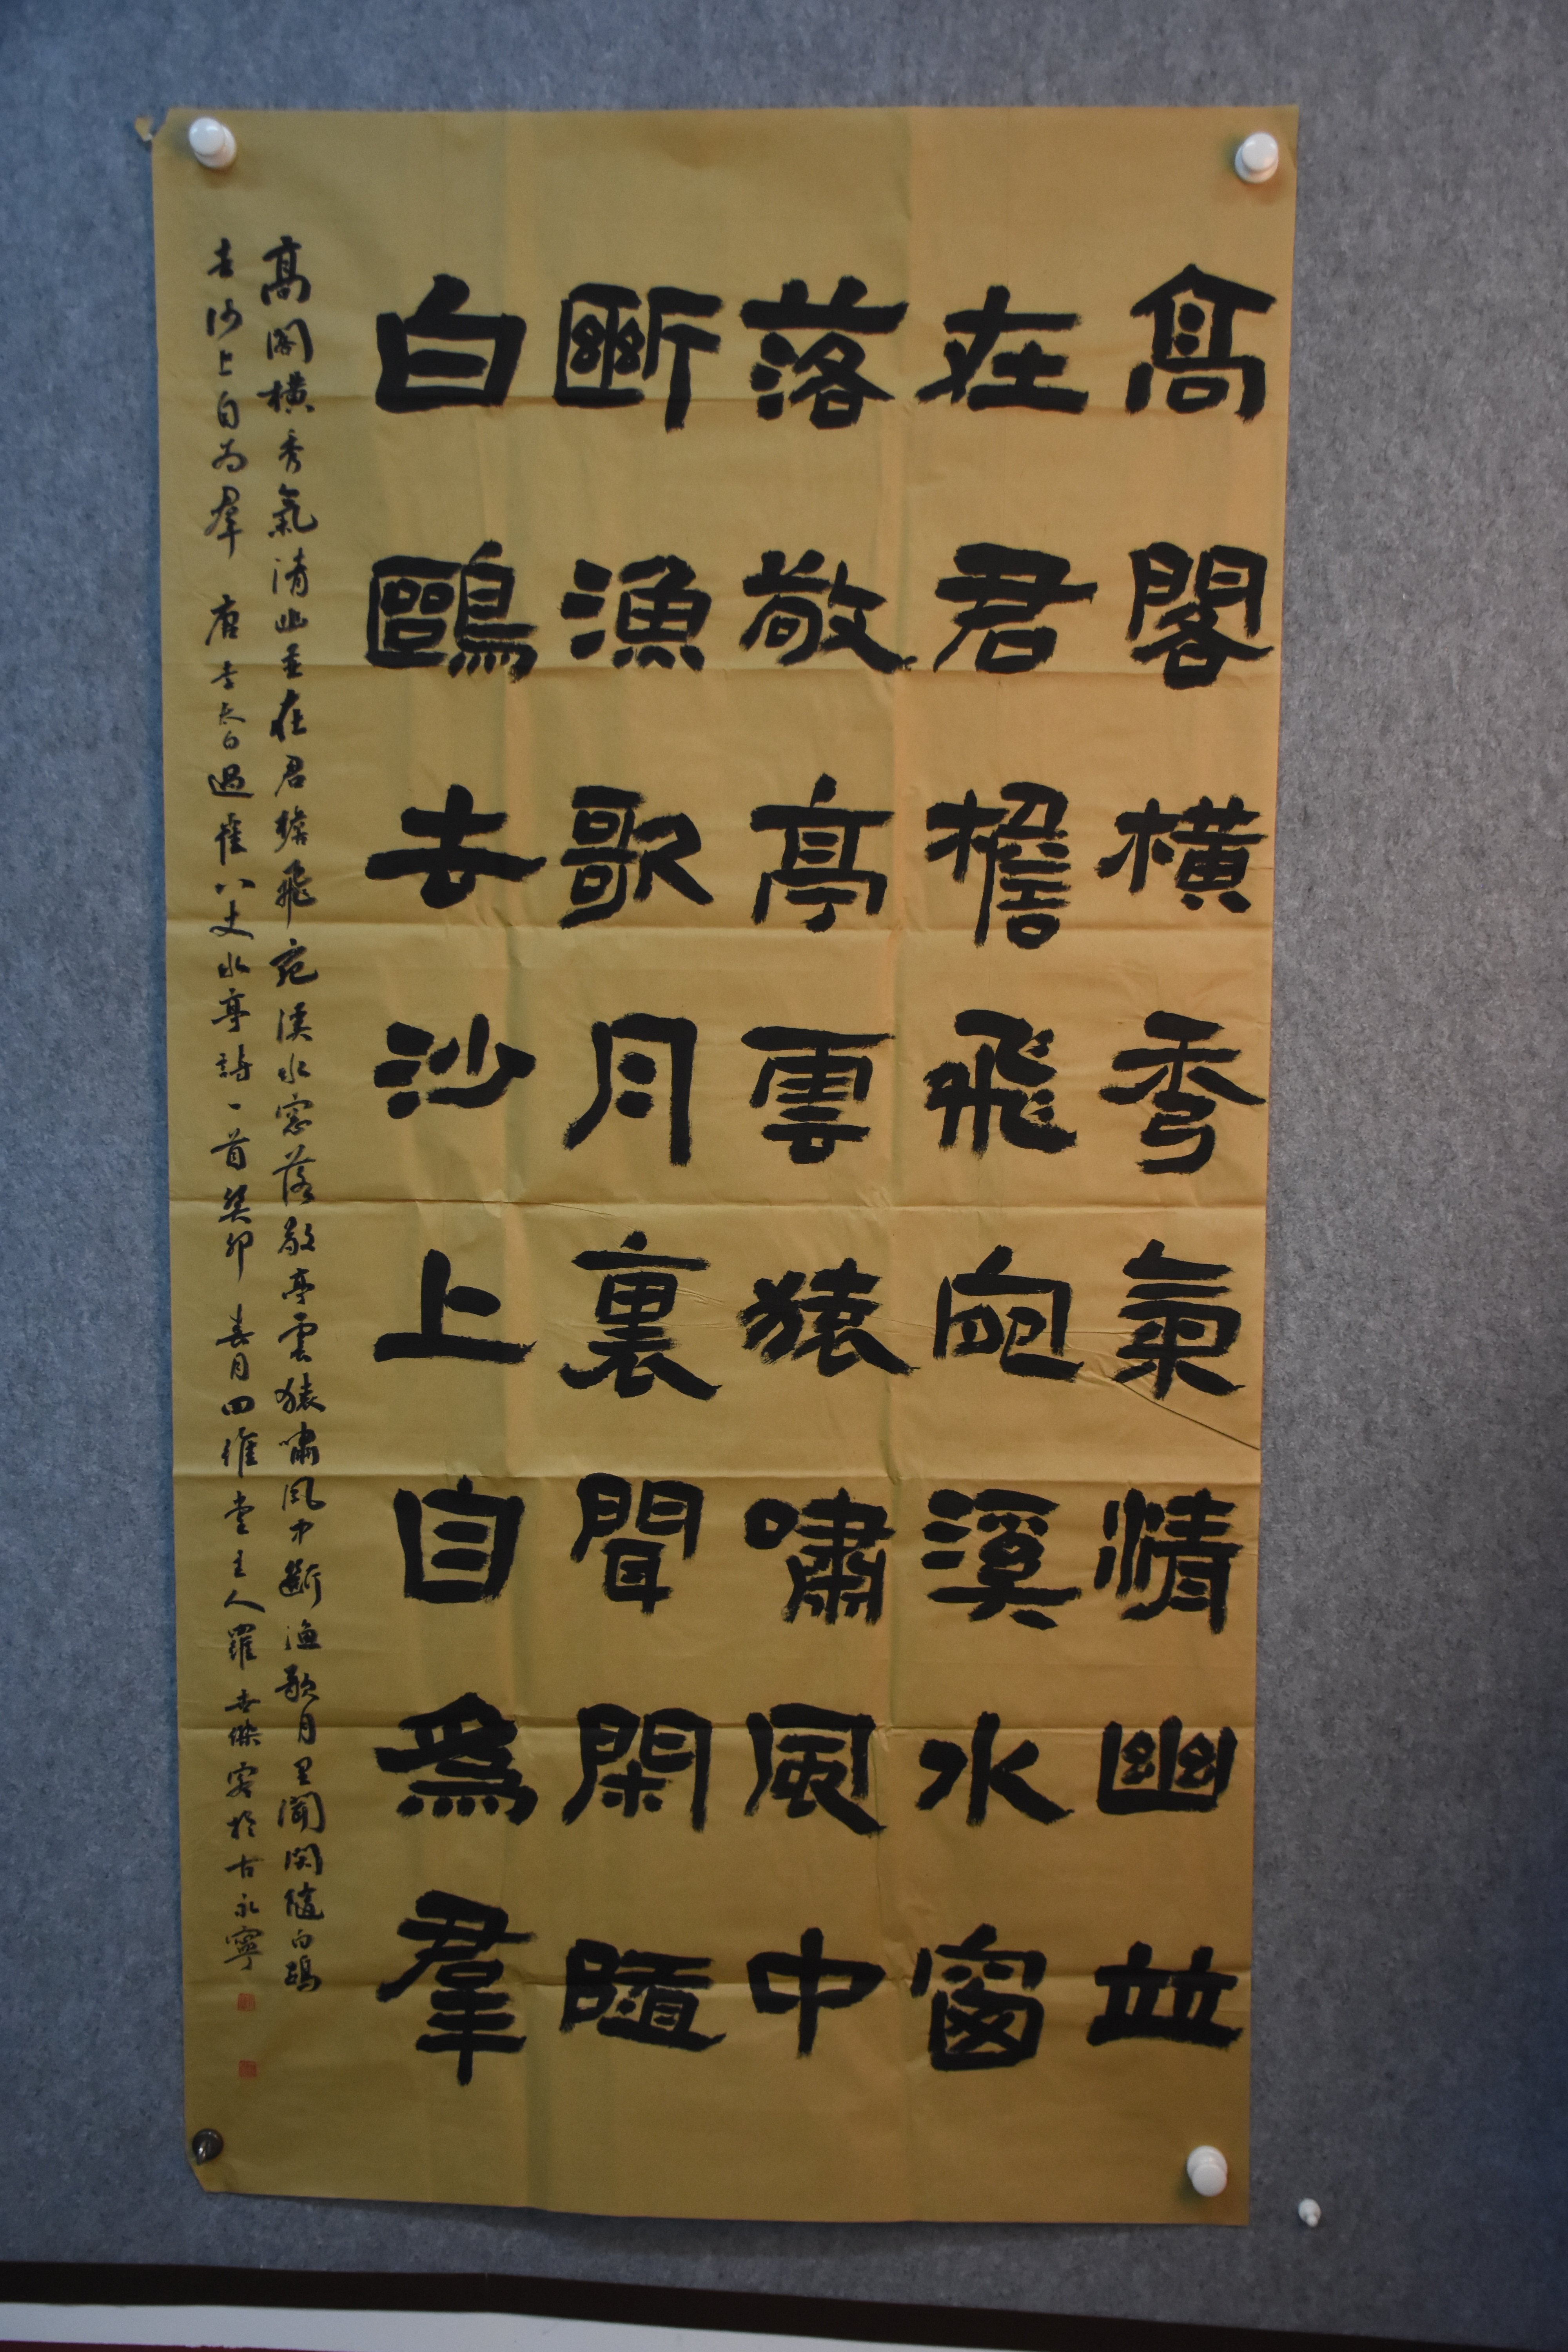 高閣橫秀氣清幽並
在君檐飛宛溪水窗
落敬亭雲猿嘯風中
斷漁歌月裏聞閑隨
白鷗去沙上自為羣
高閣橫秀氣清幽並在君檐飛宛溪水窗落敬亭雲猿嘯風中斷漁歌月里聞閑隨白鷗
去沙上自為羣 唐李太白過崔八丈水亭詩一首癸卯 春月四維堂主人羅世傑書於古永寧